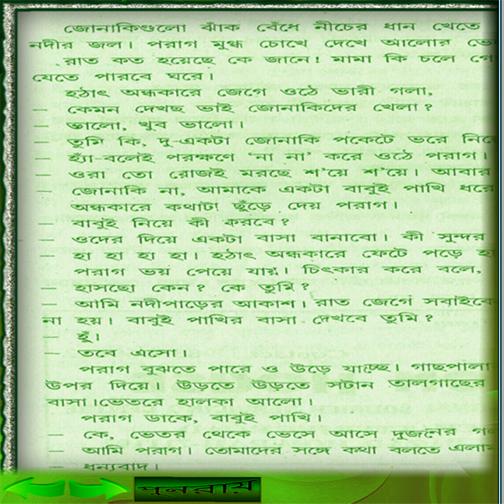 জোনাকিগুলো ঝাঁক বেঁধে নীচের ধান খেতে
নদীর জল। পরাগ মুগ্ধ চোখে দেখে আলোর
রাত কত হয়েছে কে জানে! মামা কি চলে
যেতে পারবে ঘরে।
হঠাৎ অন্ধকারে জেগে ওঠে ভারী গলা,
— কেমন দেখছ ভাই জোনাকিদের খেলা?
— ভালো, খুব ভালো।
— তুমি কি, দু-একটা জোনাকি পকেটে ভরে
— হ্যাঁ-বলেই পরক্ষণে ‘না না’ করে ওঠে পরাগ।
— ওরা তো রোজই মরছে শ'য়ে শ'য়ে। আবার
— জোনাকি না, আমাকে একটা বাবুই পাখি ধরে
অন্ধকারে কথাটা ছুঁড়ে দেয় পরাগ।
— বাবুই নিয়ে কী করবে?
— ওদের দিয়ে একটা বাসা বানাবো। কী সুন্দর
— হা হা হা হা। হঠাৎ অন্ধকারে ফেটে পড়ে
পরাগ ভয় পেয়ে যায়। চিৎকার করে বলে,
— হাসছো কেন? কে তুমি?
— আমি নদীপাড়ের আকাশ। রাত জেগে
না হয়। বাবুই পাখির বাসা দেখবে তুমি?
— হুঁ।
— তবে এসো।
পরাগ বুঝতে পারে ও উড়ে যাচ্ছে। গাছপালা
উপর দিয়ে। উড়তে উড়তে সটান তালগাছের
বাসা। ভেতরে হালকা আলো।
পরাগ ডাকে, বাবুই পাখি।
— কে, ভেতর থেকে ভেসে আসে দুজনের
— আমি পরাগ। তোমাদের সঙ্গে কথা বলতে
— ধন্যবাদ।
পুনরায়